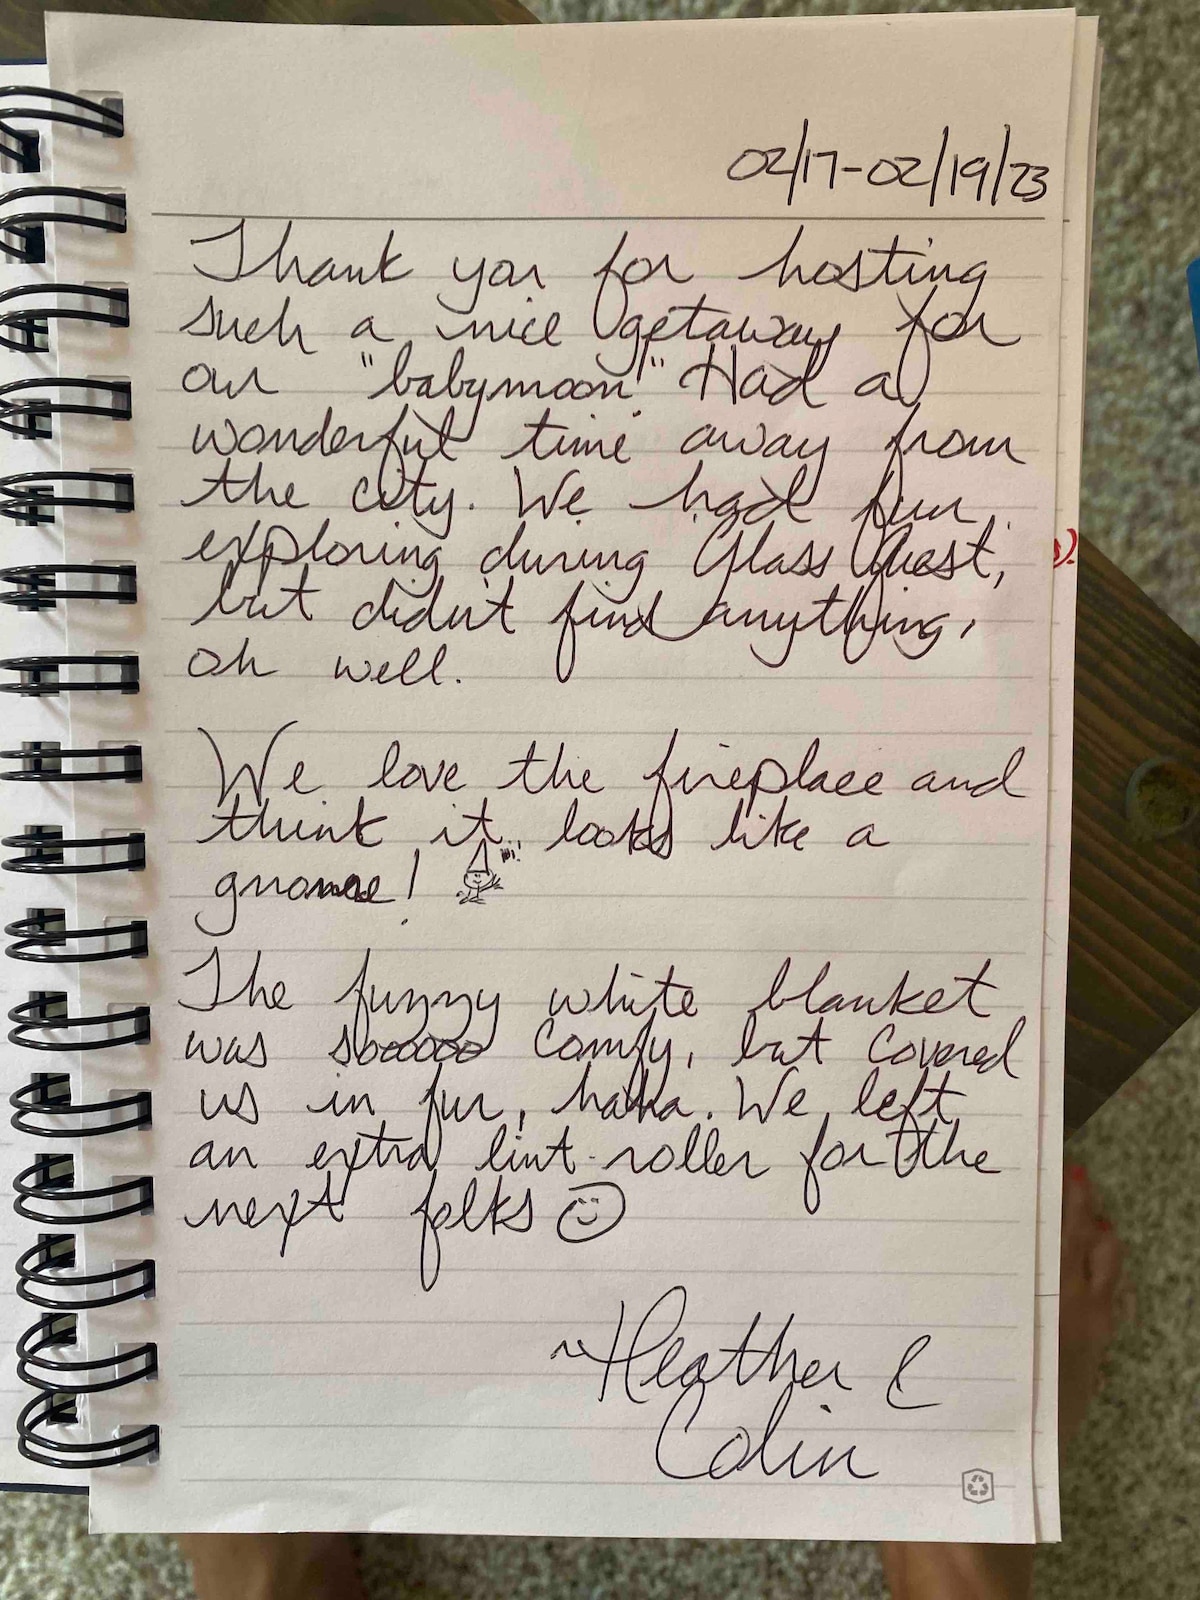 02/17-02/19/23
Thank you for hosting
such a nice getaway for
our "babymoon!" Had a
wonderful time away from
the city. We had fun
exploring during Glass Quest,
but didn't find anything,
oh well.
We love the fireplace and
think it looks like a
gnome!
The fuzzy white blanket
was sooooo comfy, but covered
us in fur, haha. We left
an extra lint-roller for the
next folks
~Heather &
Colin